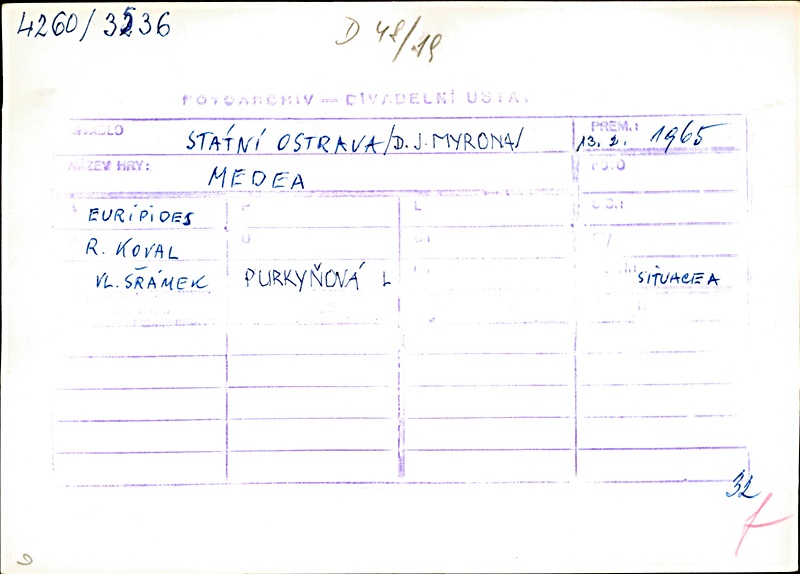 4260/3536
D 42/19
FOTOARCHIV — DIVADELNÍ ÚSTAV
DIVADLO STATNÍ OSTRAVA/D. J. MYRONA/ PREM.: 13. 2. 1965
NÁZEV HRY: MEDEA
EURIPIDES
R. KOVAL
VL. ŠRÁMEK PURKYŇOVÁ L SITUACE A
32